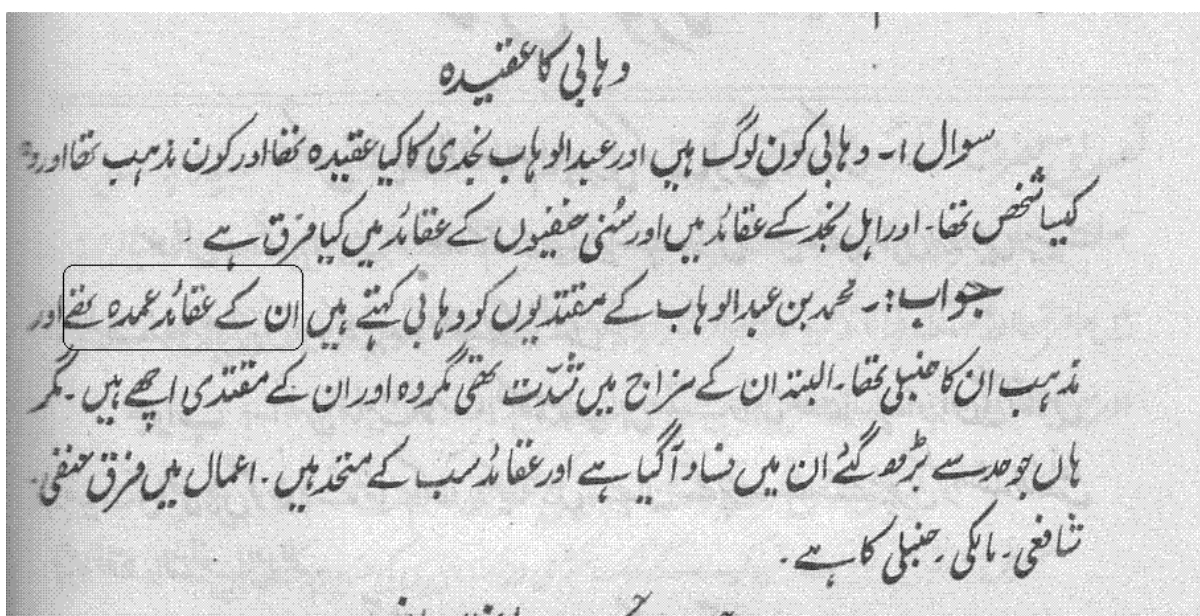 وہابی کا عقیدہ
سوال :۔ وہابی کون لوگ ہیں اور عبدالوہاب نجدی کا کیا عقیدہ تھا اور کون مذہب تھا اور وہ
کیسا شخص تھا۔ اور اہل نجد کے عقائد میں اور سُنی حنفیوں کے عقائد میں کیا فرق ہے ۔
جواب :۔ محمد بن عبدالوہاب کے مقتدیوں کو وہابی کہتے ہیں ان کے عقائد عمدہ تھے اور
مذہب ان کا حنبلی تھا۔ البتہ ان کے مزاج میں شدّت تھی مگر وہ اور ان کے مقتدی اچھے ہیں ۔ مگر
ہاں جو حد سے بڑھ گئے ان میں فساد آ گیا ہے اور عقائد سب کے متحد ہیں ۔ اعمال میں فرق حنفی ۔
شافعی ۔ مالکی ۔ حنبلی کا ہے ۔